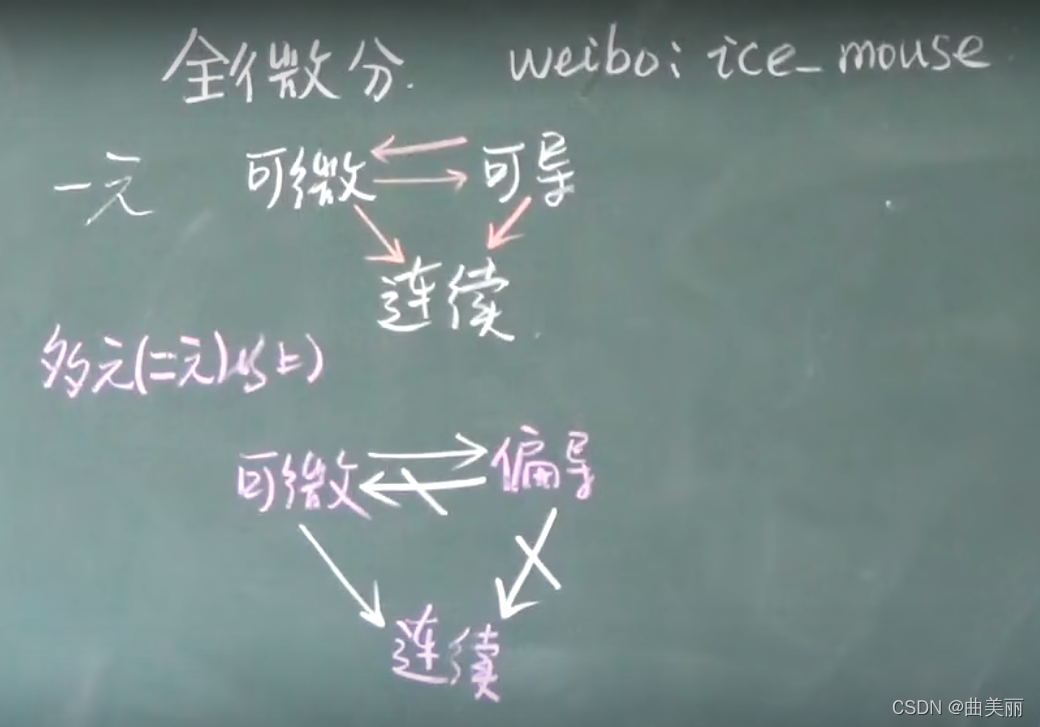 全微分. weibo: ice_mouse
一元 可微 可导
连续.
多元(二元)以上)
可微 偏导
连续
CSDN @曲美丽